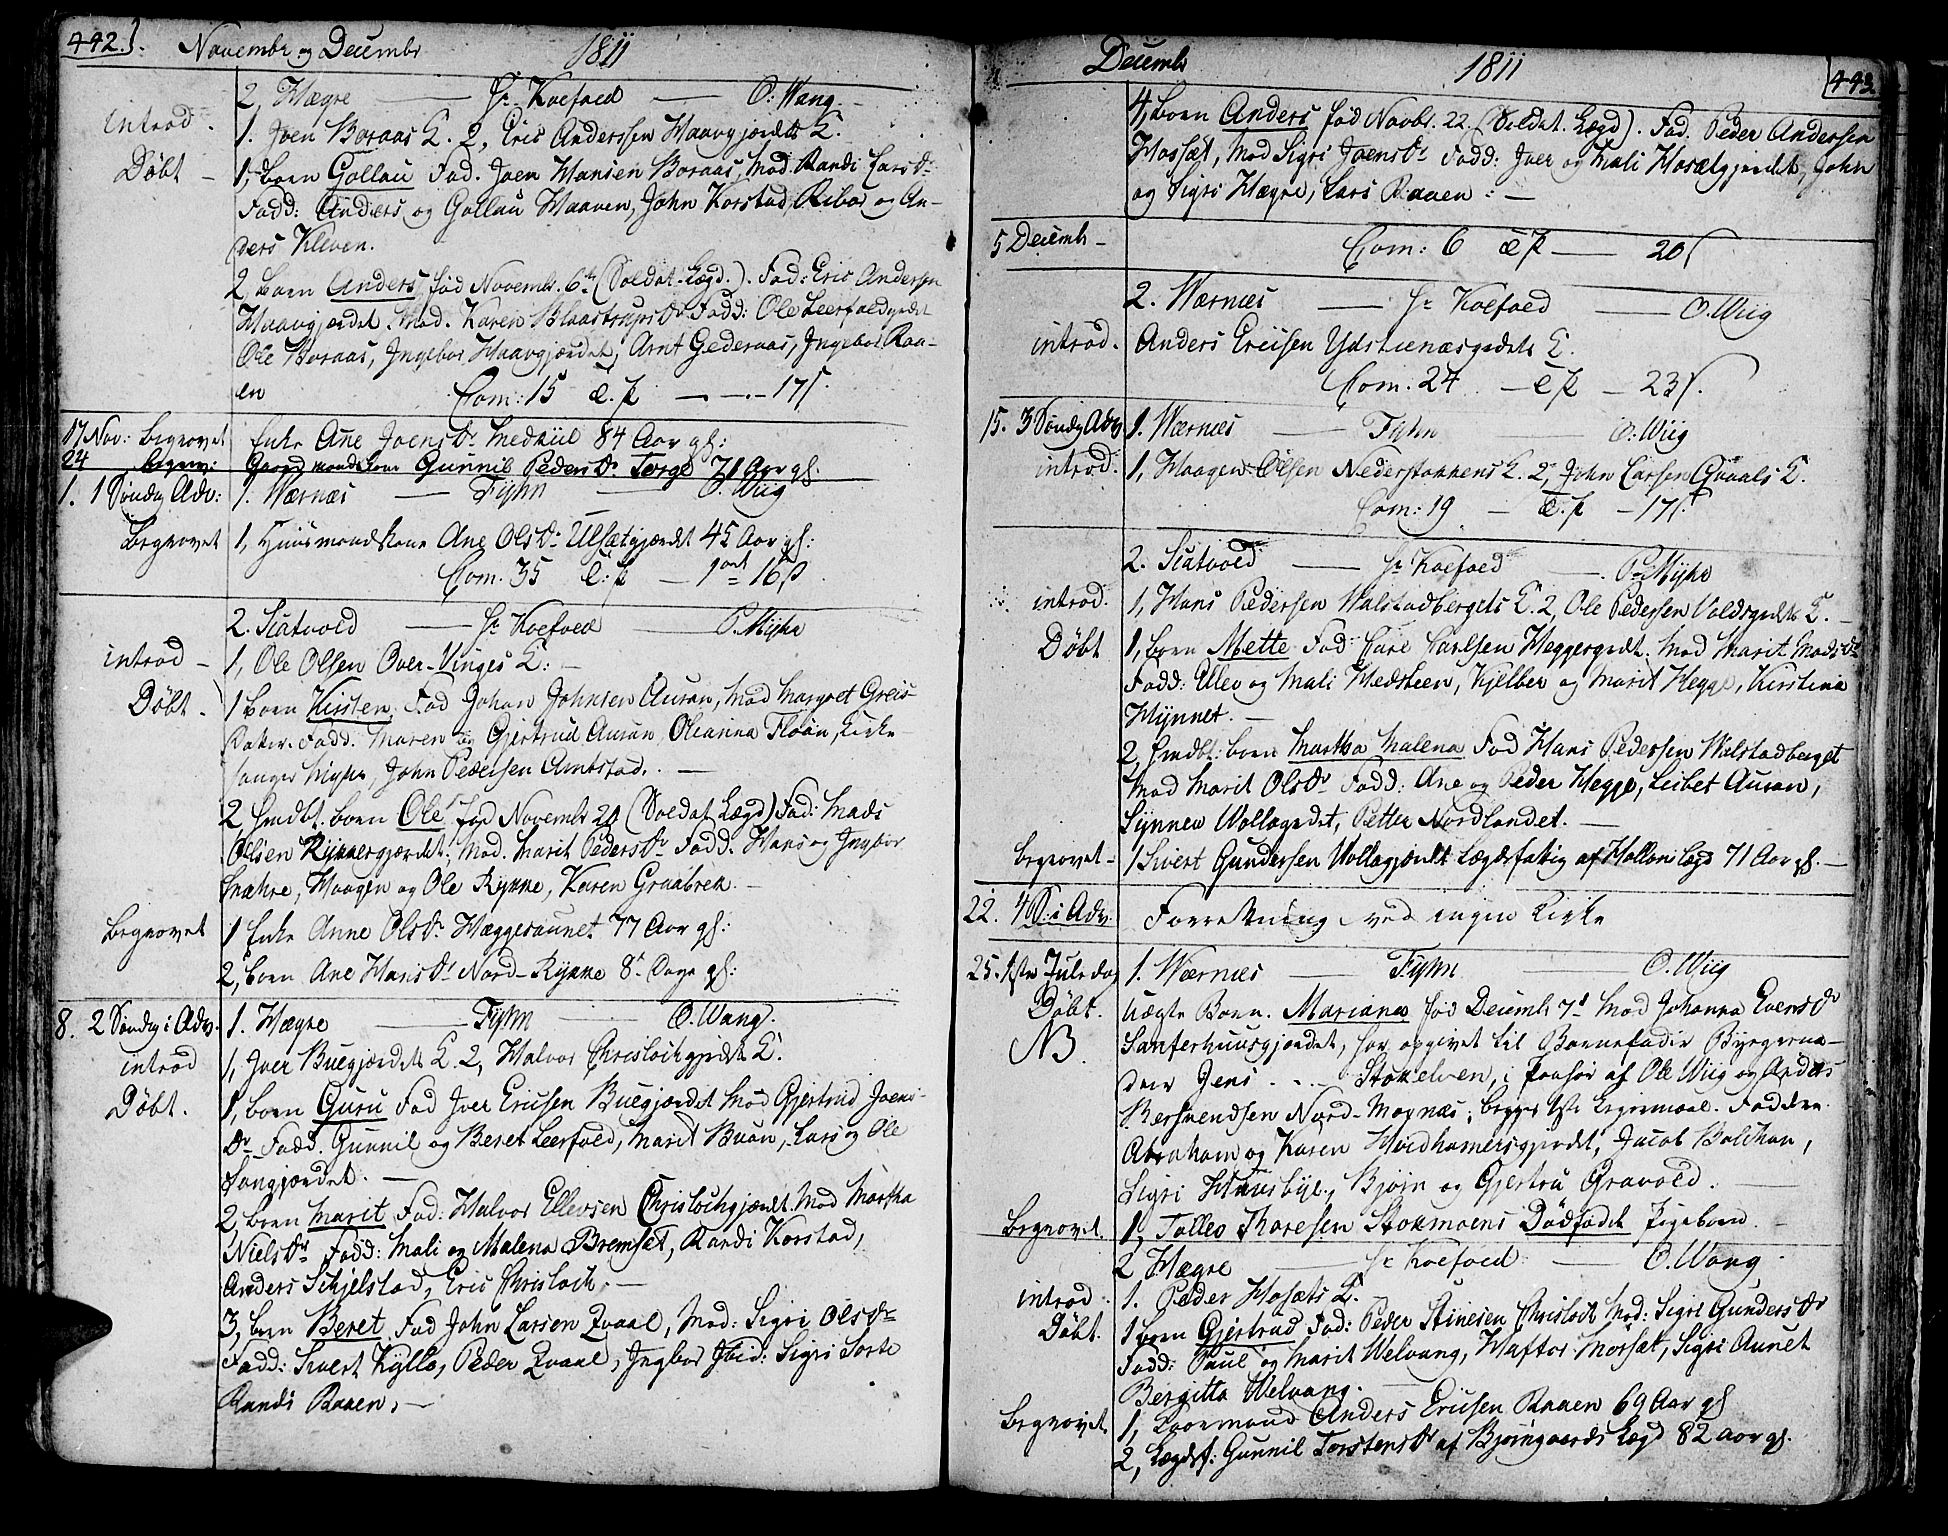 442. Novembr og Decembr 1811
2, Hægre — Hr. Koefoed — O: Wang.
introd. 1. Joen Boraas K. 2, Eric Anderssen Haavgjærdets K.
Døbt — 1, Barn Gollau Fad. Joen Hansen Boraas, Mod. Randi Larsdr.
Fadd: Anders og Gollau Haaven, John Korstad, Ribor og An-
ders Kleven.
2, Barn Anders, fød Novembr. 6te (Soldat-Lægd.). Fad: Eric Andersen
Haavgjærdet. Mod. Karen Blaastrupsdr. Fadd: Ole Leerfaldgjerdet
Ole Boraas, Ingebor Haavgjærdet, Arnt Gederaas, Ingebor Raa-
en Com: 15 E. p — 17 s.
17 Nov: Begravet Enke Ane Joensdr. Medhül 84 Aar gl:
24 begrav: Gaardmandskone Gunnil Pedersdr. Torge 71 Aar gl.
1. 1 Søndg Adv: 1. Wærnæs — Fyhn — O. Wiig
Begravet 1, Huusmandskone Ane Olsdr. Ulsætgjærdet 45 Aar gl:
Com. 35 E: p — 1 ort 16 s
2. Scatvold — Hr. Koefoed — P. Myhr
introd — 1, Ole Olsen Over-Vinges K: —
Døbt. 1 Barn Kirsten. Fad Johan Johnsen Auran, Mod Margret Greis
Fadd. Maren og Gjertrud Auran, Oleanna Fløan, Kirke-
sanger Myhr, John Pedersen Amtstad. —
2 Hmdbt. barn Ole, fød Novembr 20 (Soldat Lægd) Fad: Mads
Olsen Rykkergjærdet. Mod. Marit Pedersdr. Fadd. Hans og Ingebor
Mæhre, Haagen og Ole Rykke, Karen Graabrek. —
Begravet 1 Enke Anne Olsdr. Hæggesaunet 77 Aar gl:
2, Barn Ane Hansdr. Nord-Rykke 8 Dage gl:
8. 2 Søndg i Adv. 1. Hægre — Fyhn — O. Wang.
introd 1, Iver Buegjærdets K. 2, Halvor Chrislochgjærdets K.
Døbt. 1, Barn Guru Fad Iver Ericsen Buegjærdet Mod Gjertrud Joens-
dr. Fadd. Gunnil og Beret Leerfald, Marit Buan, Lars og Ole
Sangjærdet. —
2, Barn Marit Fad: Halvor Ellevsen Chrislochgjærdet. Mod Martha
Nielsdr. Fadd: Mali og Malena Bremset, Randi Korstad,
Anders Schjelstad, Eric Chrisloch. —
3, barn Beret Fad John Larsen Qvaal, Mod: Sigri Olsdr.
Fadd: Sivert Kyllo, Peder Qvaal, Ingbor Ibid: Sigri Sorte
Randi Raaen. —
Decembr 1811 443
4, Barn Anders fød Novbr. 22 (Soldat. Lægd). Fad. Peder Andersen
Hosæt, Mod Sigri Joensdr. Fadd: Iver og Mali Hosætgjerdet, John
og Sigri Hægre, Lars Raaen : —
5 Decembr — Com: 6 E p — 20 s
2. Wærnæs — Hr Koefoed — O. Wiig
introd. Anders Ericsen Ydstienæsgjerdets K.
Com: 24 — E p — 23 s.
15. 3 Søndg Adv. 1. Wærnæs — Fyhn — O: Wiig
introd: 1, Haagen Olsen Nederstokkens K. 2, John Larsen Qvaals K.
Com: 19 — E. p — 17 s.
2. Scatvold — Hr Koefoed — P. Myhr
introd. 1, Hans Pedersen Walstadbergets K. 2, Ole Pedersen Voldsgjerdets K. —
Døbt 1, barn Mette Fad: Carl Carlsen Heggergjerdet. Mod Marit Madsdr
Fadd: Ellev og Mali Hedsteen, Kjelber og Marit Hegge, Kirstina
Hynnet. —
2, Hmdbt. barn Martha Malena Fad Hans Pedersen Walstadberget
Mod Marit Olsdr. Fadd: Ane og Peder Hegge, Lisbet Auran,
Synnev Wollagjerdet, Petter Nordlandet. —
Begravet — 1 Sivert Gundersen Wollagjærdet Lægdsfattig af Hollan Lægd 71 Aar gl. —
22. 4 S: i Adv: Forretning ved ingen Kirke
25. 1ste Juledag 1. Wærnæs — Fyhn — O. Wiig
Døbt. Uægte Barn. Mariana fød Decembr 7de Mod Johanna Evensdr
NB. Sanferhuusgjerdet, har opgivet til Barnefader Byegerne-
dreng Jens .... Stokelven, i Paahør af Ole Wiig og Anders
Bersvendsen Nord-Maynæs, begges 1ste Leiermaal. Faddere
Abraham og Karen Hvidhamersgjerdet, Jacob Balchan,
Sigri Huusbye, Bjørn og Gjertru Gravold. —
Begravet. 1, Tolles Thoresen Stokmoens Dødfødt Pigebarn. —
2 Hægre — Hr Koefoed — O. Wang.
introd 1. Peder Hosæts K.
Døbt. 1 barn Gjertrud Fad: Peder Stinesen Chrisloch Mod: Sigri Gundersdr
Fadd: Paul og Marit Welvang, Haftor Morsæt, Sigri Aunet
Bergitta Welvang.
Begravet 1, Kaarmand Anders Ericsen Raaen 69 Aar gl
2, Lægdsf: Gunnil Torstensdr af Bjørngaards Lægd 82 aar gl.